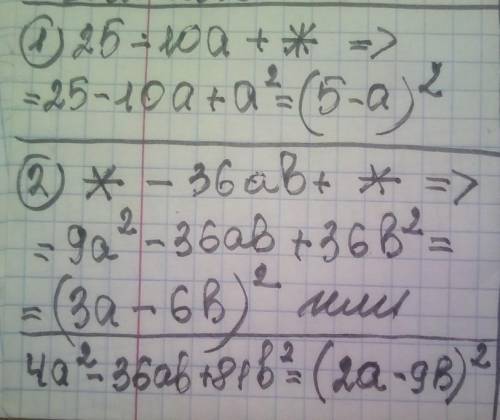 1) 25 - 10a + * =>
= 25 - 10a + a² = (5 - a)²
2) * - 36ab + * =>
= 9a² - 36ab + 36b² =
= (3a - 6b)² или
4a² - 36ab + 81b² = (2a - 9b)²